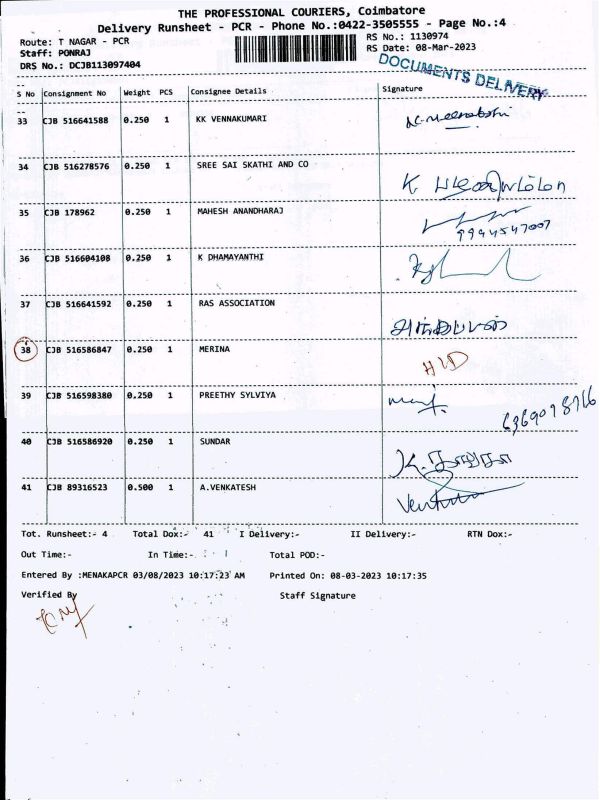 THE PROFESSIONAL COURIERS, Coimbatore
Delivery Runsheet - PCR - Phone No.:0422-3505555 - Page No.:4
Route: T NAGAR - PCR RS No.: 1130974
Staff: PONRAJ RS Date: 08-Mar-2023
DRS No.: DCJB113097404
DOCUMENTS DELIVERY
S No Consignment No Weight PCS Consignee Details Signature
33 CJB 516641588 0.250 1 KK VENNAKUMARI
34 CJB 516278576 0.250 1 SREE SAI SKATHI AND CO
K
35 CJB 178962 0.250 1 MAHESH ANANDHARAJ
9944547007
36 CJB 516604108 0.250 1 K DHAMAYANTHI
37 CJB 516641592 0.250 1 RAS ASSOCIATION
38 CJB 516586847 0.250 1 MERINA
39 CJB 516598380 0.250 1 PREETHY SYLVIYA
40 CJB 516586920 0.250 1 SUNDAR
41 CJB 89316523 0.500 1 A.VENKATESH
Tot. Runsheet:- 4 Total Dox:- 41 I Delivery:- II Delivery:- RTN Dox:-
Out Time:- In Time:- Total POD:-
Entered By :MENAKAPCR 03/08/2023 10:17:23 AM Printed On: 08-03-2023 10:17:35
Verified By Staff Signature